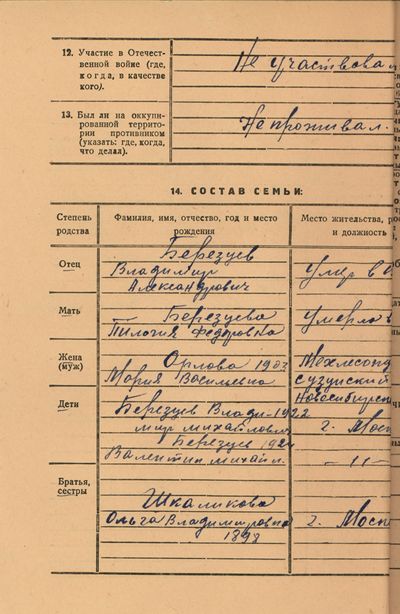 12. Участие в Отечест-
венной войне (где,
когда, в качестве
кого).
Не участвовал
13. Был ли на оккупи-
рованной террито-
рии противником
(указать: где, когда,
что делал).
Не проживал.
14. СОСТАВ СЕМЬИ:
Степень
родства
Фамилия, имя, отчество, год и место
рождения
Место жительства, р
и должность
Отец
Березуев
Владимир
Александрович
Умер в
Мать
Березуева
Федоровна
Умерла
Жена
(муж)
Орлова 1903
Мария Васильевна
Сузунский
Новосибирск
Дети
Березуев Влади- 1922
мир Михайлович
г. Моск
Березуев 1924
Валентин Михайл.
-11-
Братья,
сестры
Шкаликова
Ольга Владимировна
1898
г. Моск